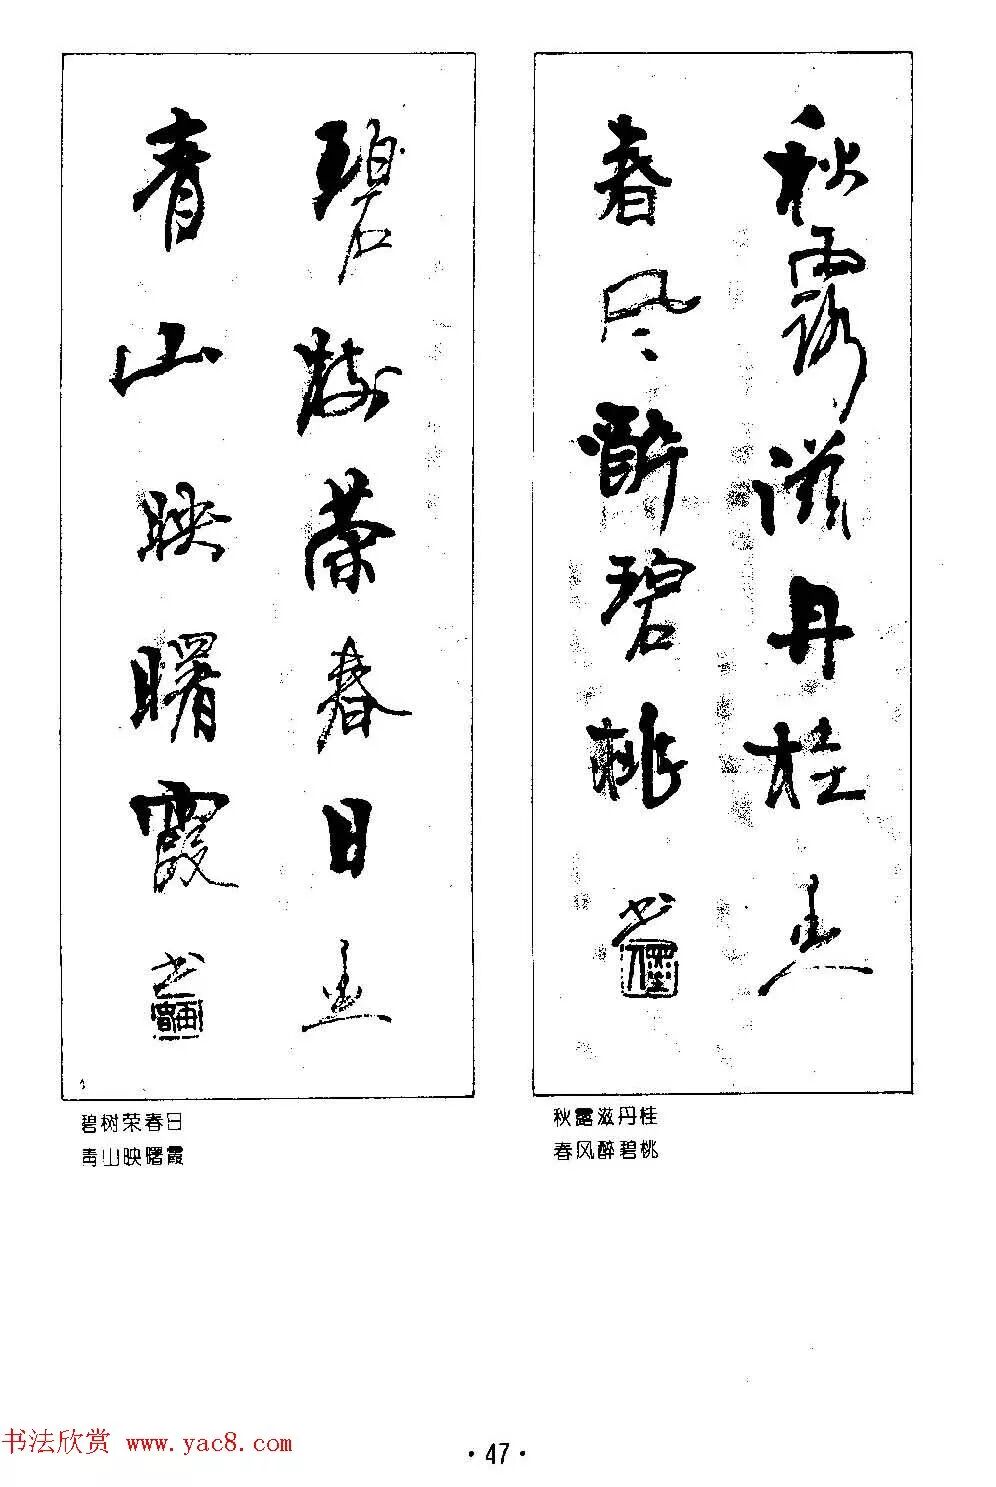 秋露滋丹桂
春风醉碧桃
书
碧树荣春日
青山映曙霞
书
秋露滋丹桂
春风醉碧桃
碧树荣春日
青山映曙霞
书法欣赏 www.yac8.com
·47·